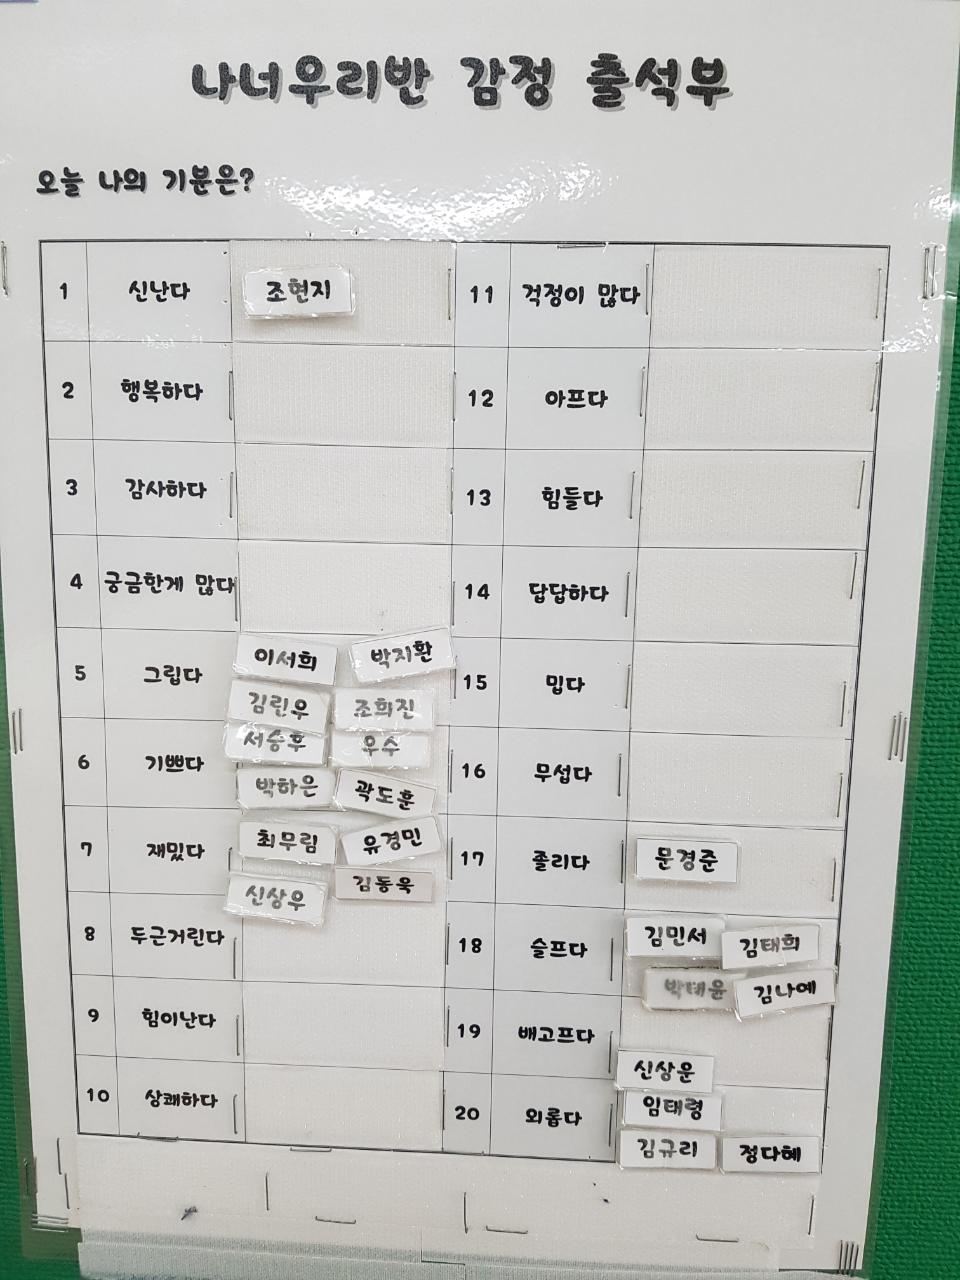 나너우리반 감정 출석부
오늘 나의 기분은?
1 신난다 조현지
2 행복하다
3 감사하다
4 궁금한게 많다
5 그립다 이서희 박지환
김린우 조희진
6 기쁘다 서승후 우수
박하은 곽도훈
7 재밌다 최무림 유경민
신상우 김동욱
8 두근거린다
9 힘이난다
10 상쾌하다
11 걱정이 많다
12 아프다
13 힘들다
14 답답하다
15 밉다
16 무섭다
17 졸리다 문경준
18 슬프다 김민서 김태희
박태윤 김나예
19 배고프다
신상운
20 외롭다 임태령
김규리 정다혜